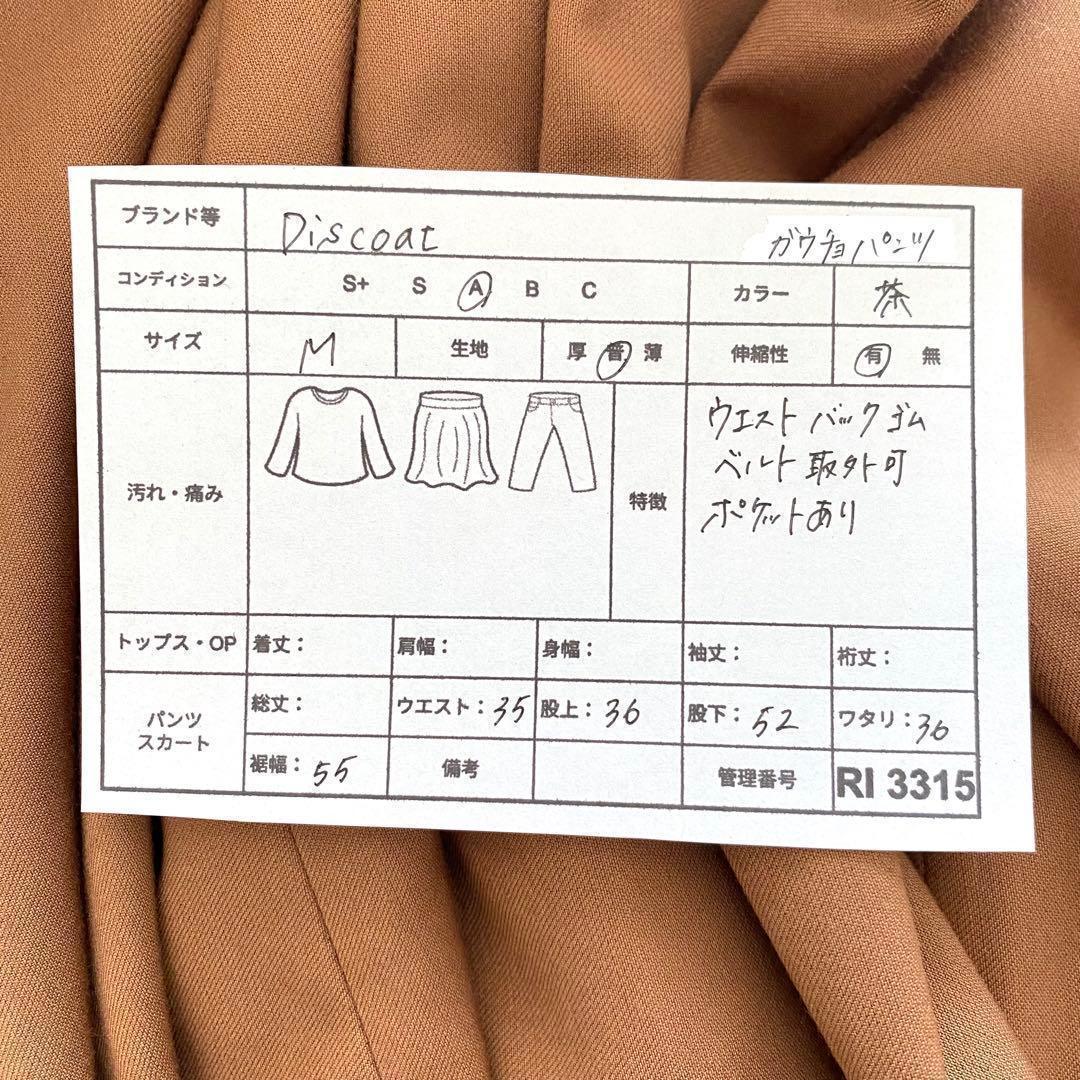 ブランド等 Discoat ガウチョパンツ
コンディション S+ S A B C カラー 茶
サイズ M 生地 厚 普 薄 伸縮性 有 無
汚れ・痛み 特徴
ウエストバックゴム
ベルト取外可
ポケットあり
トップス・OP 着丈: 肩幅: 身幅: 袖丈: 裄丈:
パンツ
スカート
総丈: ウエスト:35 股上:36 股下:52 ワタリ:36
裾幅:55 備考 管理番号 RI 3315